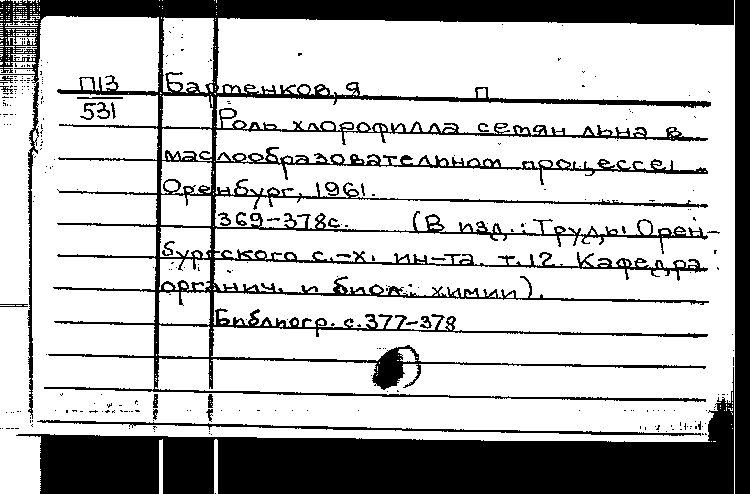 П13 Бартенков, Я П
531
Роль хлорофилла семян льна в
маслообразовательном процессе.
Оренбург, 1961.
369-378с. (В изд.: Труды Орен-
бургского с.-х. ин-та. т.12. Кафедра
органич. и биол. химии).
Библиогр. с.377-378